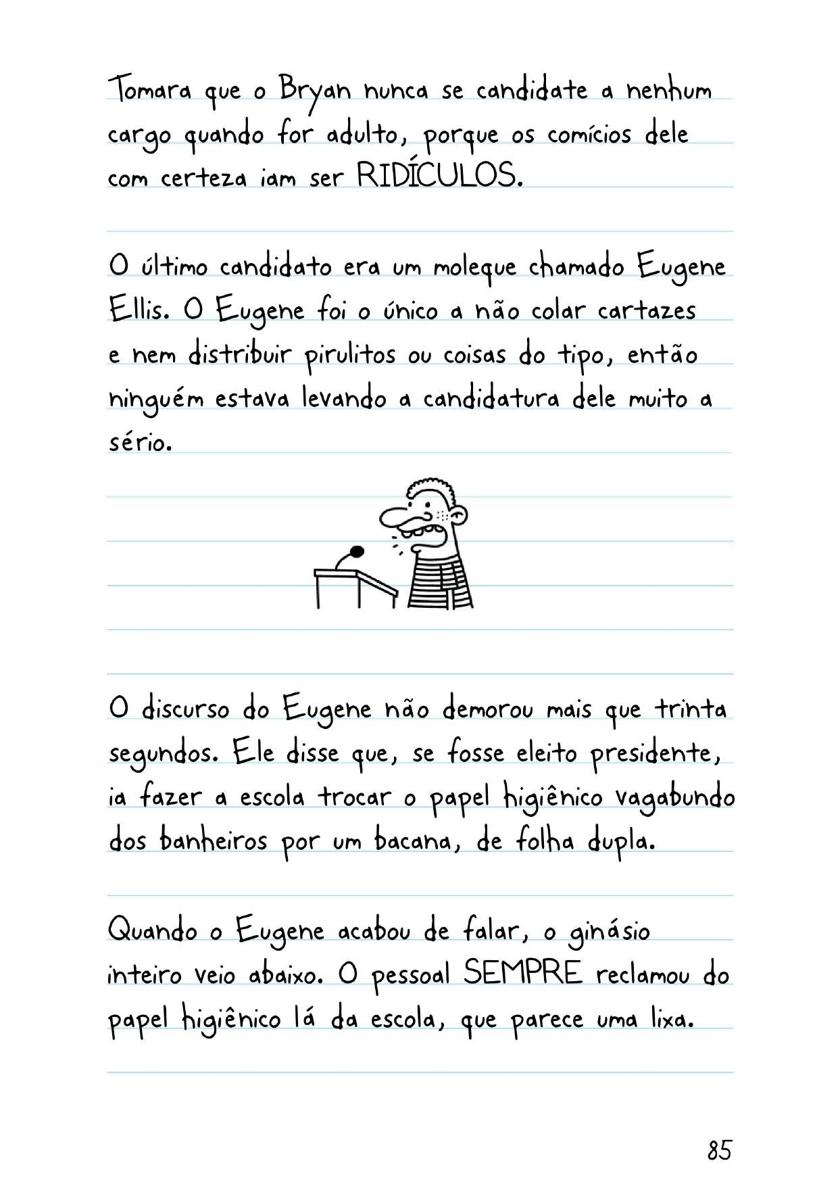 Tomara que o Bryan nunca se candidate a nenhum
cargo quando for adulto, porque os comícios dele
com certeza iam ser RIDÍCULOS.
O último candidato era um moleque chamado Eugene
Ellis. O Eugene foi o único a não colar cartazes
e nem distribuir pirulitos ou coisas do tipo, então
ninguém estava levando a candidatura dele muito a
sério.
O discurso do Eugene não demorou mais que trinta
segundos. Ele disse que, se fosse eleito presidente,
ia fazer a escola trocar o papel higiênico vagabundo
dos banheiros por um bacana, de folha dupla.
Quando o Eugene acabou de falar, o ginásio
inteiro veio abaixo. O pessoal SEMPRE reclamou do
papel higiênico lá da escola, que parece uma lixa.
85